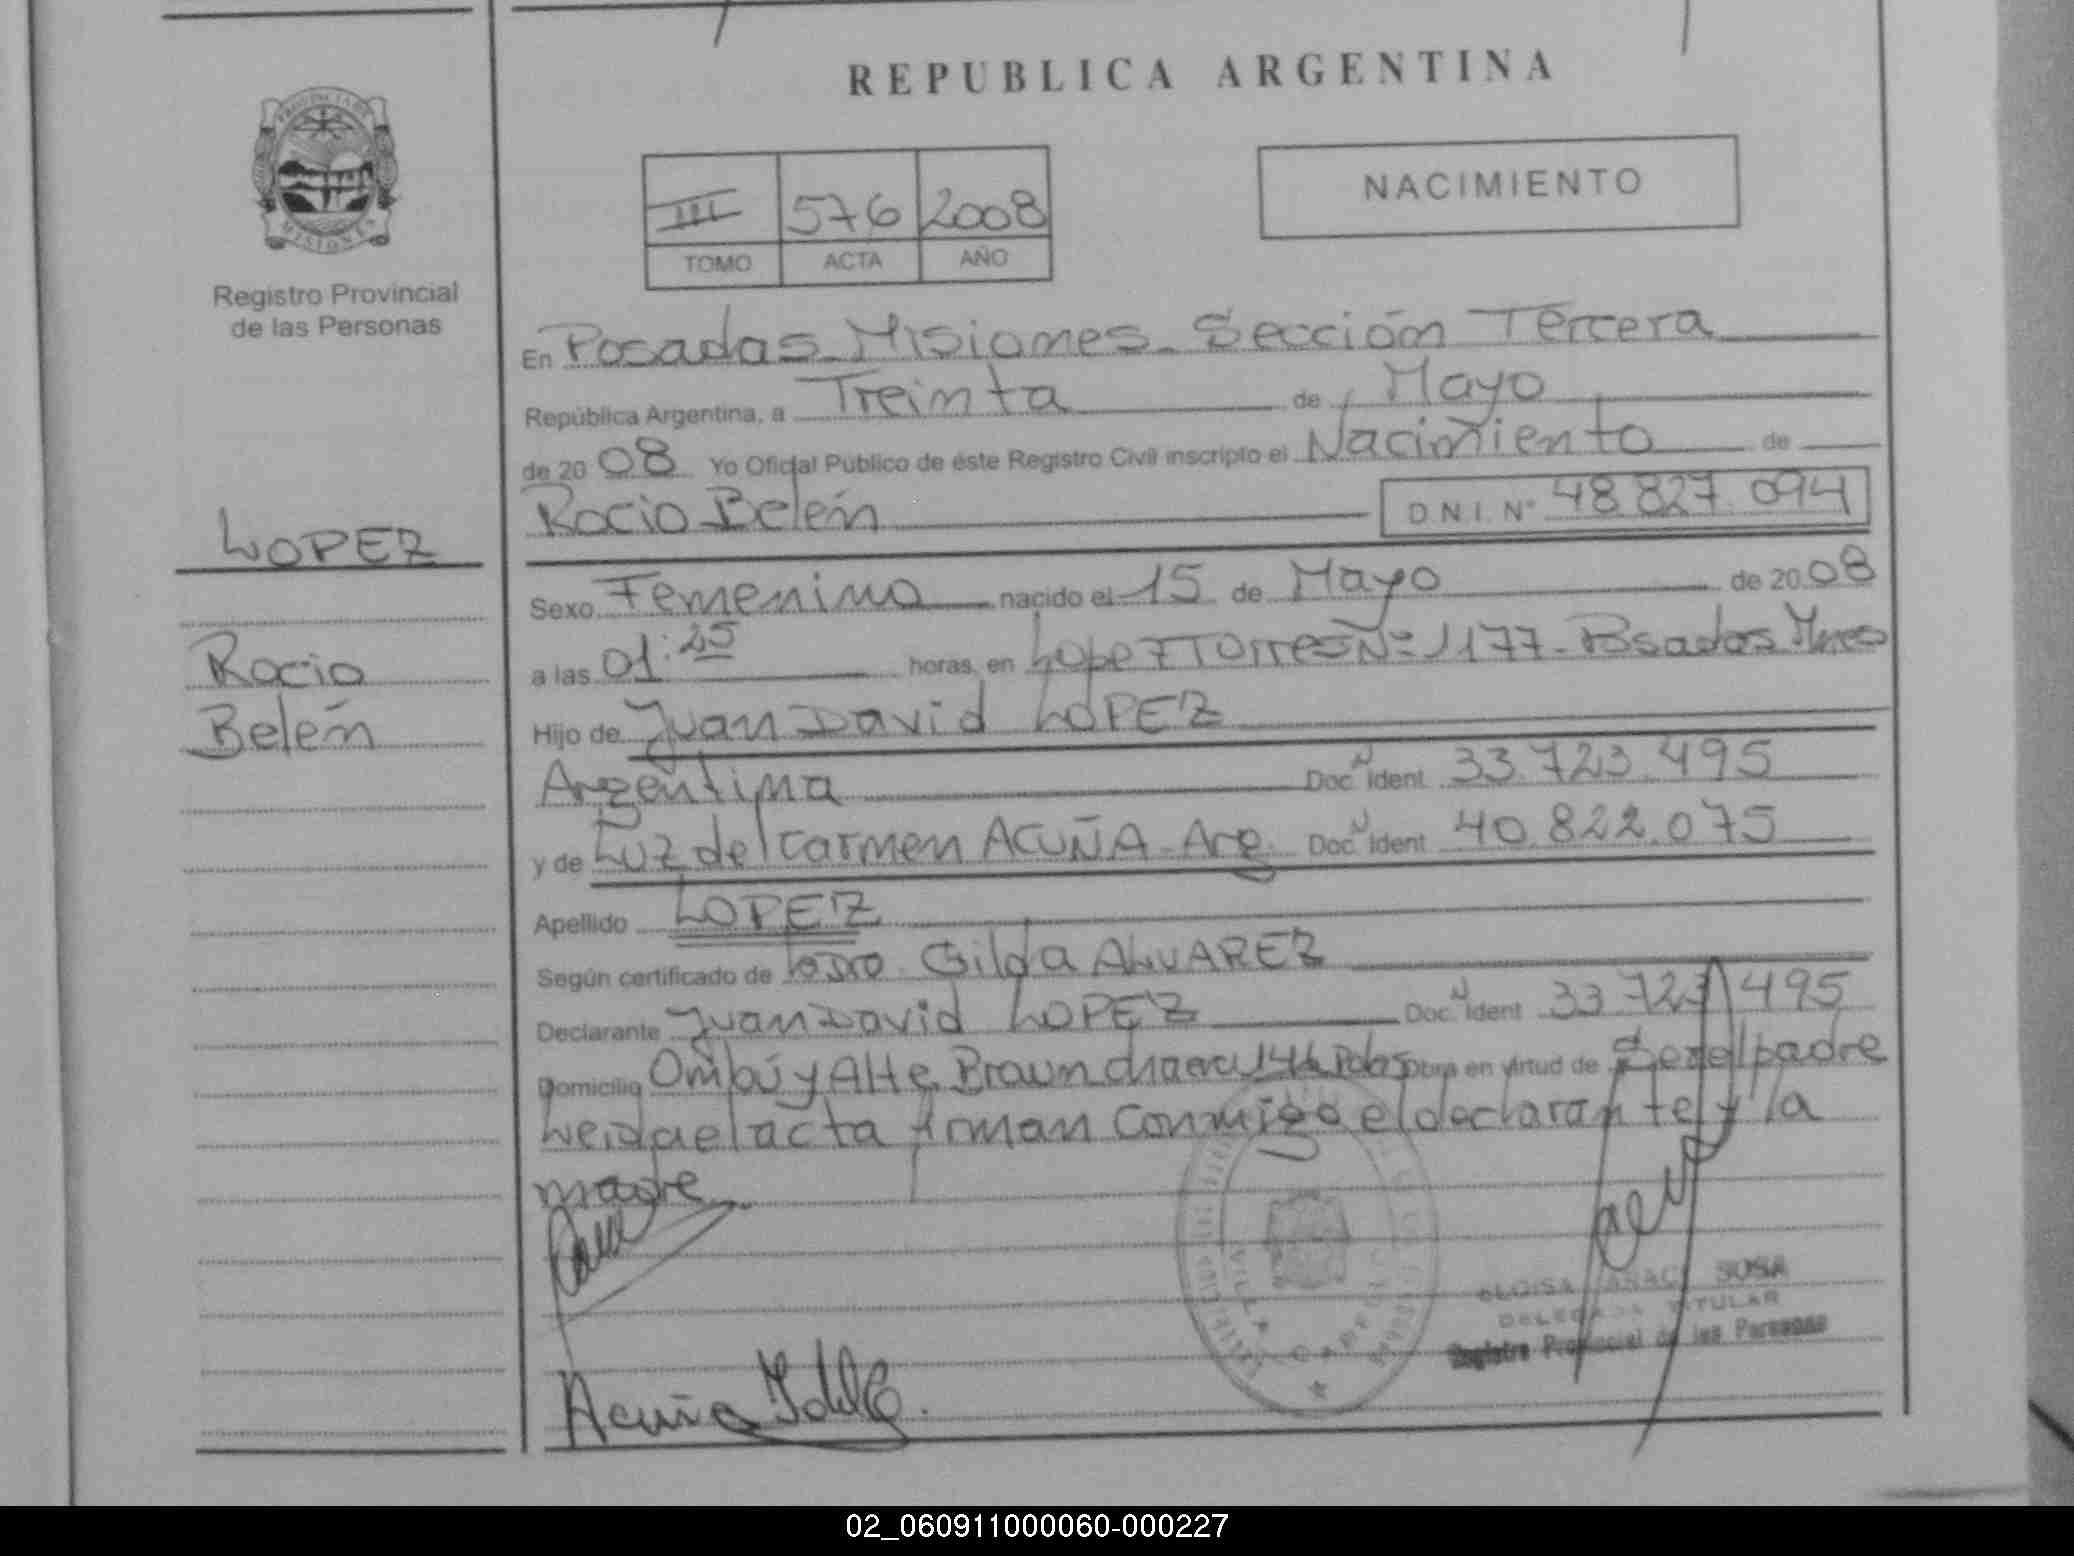 REPUBLICA ARGENTINA
PROVINCIA DE
MISIONES
Registro Provincial
de las Personas
III 576 2008
TOMO ACTA AÑO
NACIMIENTO
En Posadas Misiones - Sección Tercera
República Argentina, a Treinta de Mayo
de 2008 Yo Oficial Público de éste Registro Civil inscripto el Nacimiento de
Rocio Belén D.N.I. Nº 48 827 094
LOPEZ
Rocio
Belén
Sexo Femenino nacido el 15 de Mayo de 2008
a las 01:25 horas, en Lopez Torres Nº 1177 - Posadas Mnes
Hijo de Juan David LOPEZ
Argentina Doc N Ident 33.723.495
y de Luz del Carmen ACUÑA - Arg. Doc N Ident 40.822.075
Apellido LOPEZ
Según certificado de Gilda ALVAREZ
Declarante Juan David LOPEZ Doc N Ident 33 723 495
Domicilio Ombú y Alte Brown chacra 146 Pdas Obra en virtud de Ser el padre
Leida el acta firman conmigo el declarante y la
madre
ELOISA SOSA
DELEGADA TITULAR
Registro Provincial de las Personas
Acuña
02_060911000060-000227